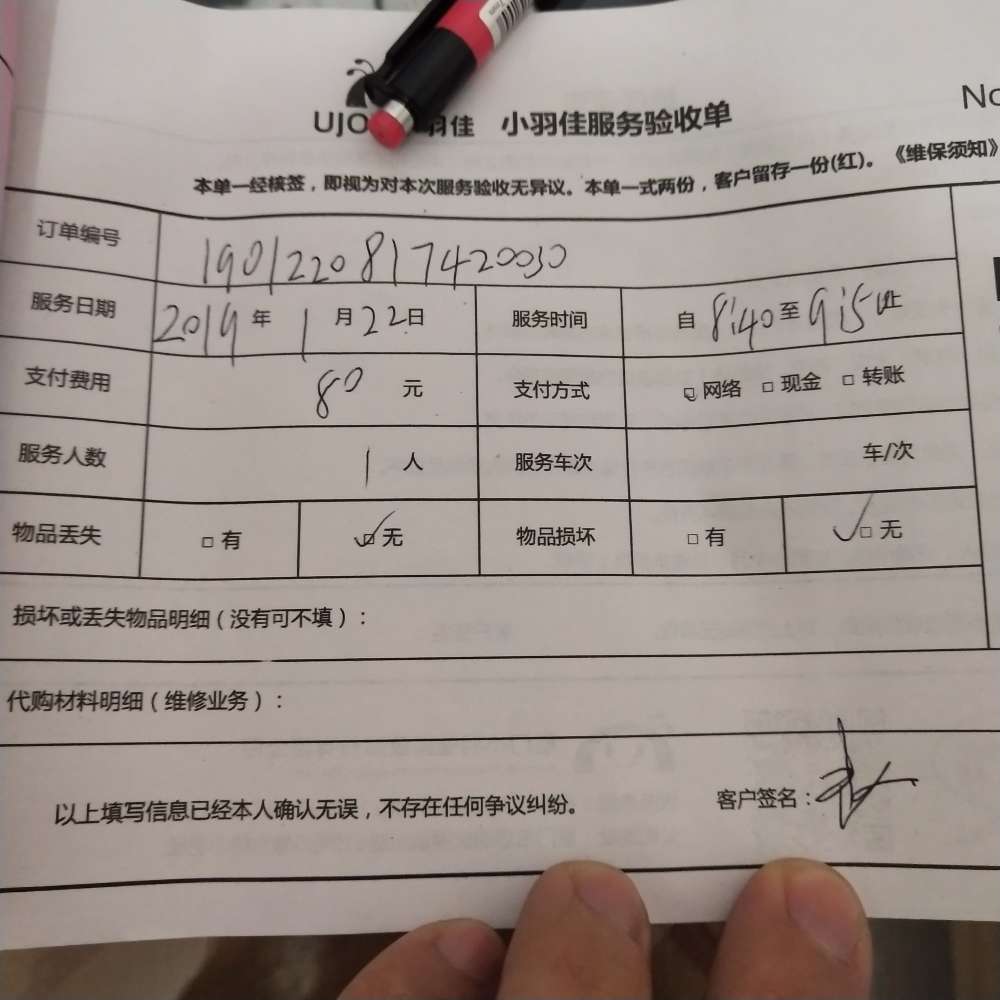 No
UJO 羽佳 小羽佳服务验收单
本单一经核签，即视为对本次服务验收无异议。本单一式两份，客户留存一份(红)。《维保须知》
订单编号 1901220817420030
服务日期 2019年 1月22日 服务时间 自 8:40 至 9:15 止
支付费用 80 元 支付方式 □网络 □现金 □转账
服务人数 1 人 服务车次 车/次
物品丢失 □有 ☑无 物品损坏 □有 ☑无
损坏或丢失物品明细(没有可不填)：
代购材料明细(维修业务)：
以上填写信息已经本人确认无误，不存在任何争议纠纷。 客户签名：